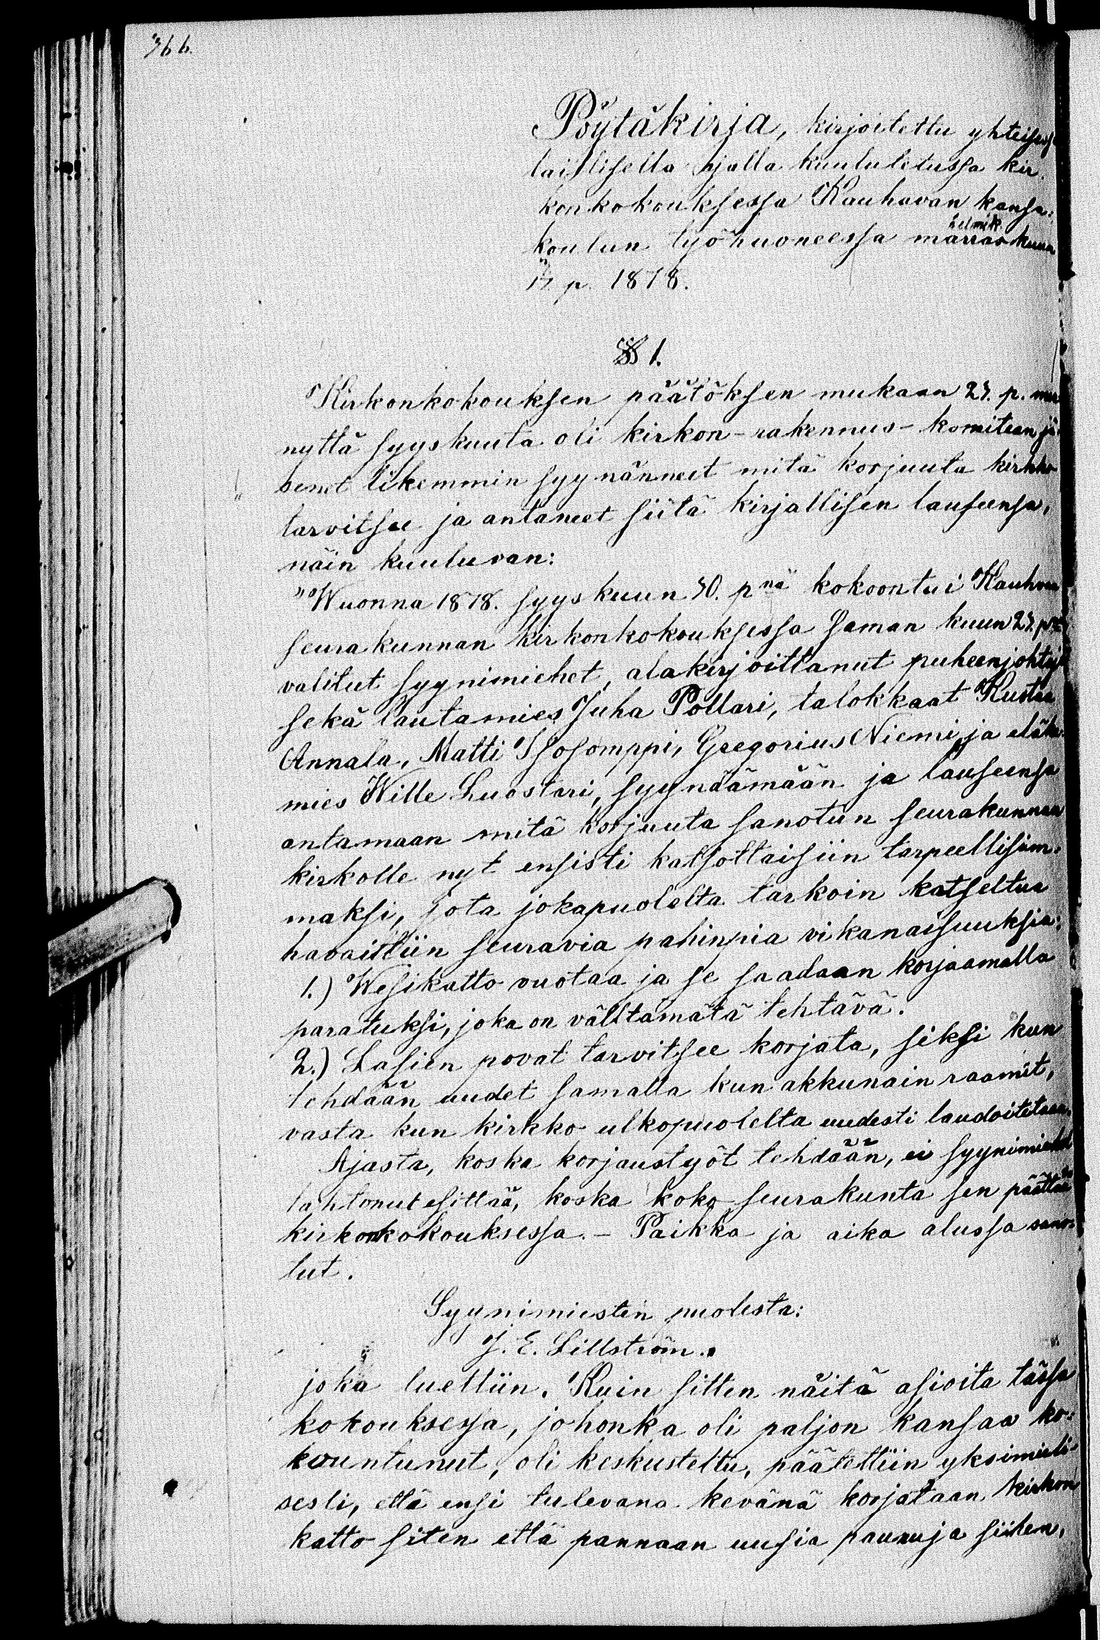 366.
Pöytäkirja, kirjoitettu yhteises
laillisella ajalla kuulutetussa kir-
konkokouksessa Kauhavan kansa-
koulun työhuoneessa marraskuun
17 p. 1878.
§ 1.
Kirkonkokouksen päätöksen mukaan 27. p. men
nyttä syyskuuta oli kirkon-rakennus-komitean jä
senet likemmin syynänneet mitä korjuuta kirkko
tarvitsee ja antaneet siitä kirjallisen lauseensa,
näin kuuluvan:
"Wuonna 1878. syyskuun 30. pnä kokoontui Kauhavan
seurakunnan kirkonkokouksessa saman kuun 27. pnä
valitut syynimiehet, alakirjoittanut puheenjohtaja
sekä lautamies Juha Pollari, talokkaat Kustaa
Annala, Matti Isosomppi, Gregorius Niemi ja eläke-
mies Wille Luostari, syynäämään ja lauseensa
antamaan mitä korjuuta sanotun seurakunnan
kirkolle nyt ensisti katsottaisiin tarpeellisim-
maksi, jota jokapuolelta tarkoin katseltua
havaittiin seuravia pahinpia vikanaisuuksia:
1.) Wesikatto vuotaa ja se saadaan korjaamalla
paratuksi, joka on välttämätä tehtävä.
2.) Lasien povat tarvitsee korjata, siksi kun
tehdään uudet samalla kun akkunain raamit,
vasta kun kirkko ulkopuolelta uudesti laudoitetaan.
Ajasta, koska korjaustyöt tehdään, ei syynimiehet
tahtonut esittää, koska koko seurakunta sen päättää
kirkonkokouksessa. - Paikka ja aika alussa sano-
tut.
Syynimiesten puolesta:
J. E. Lillström.
joka luettiin. Kuin sitten näitä asioita tässä
kokouksessa, johonka oli paljon kansaa ko-
kountunut, oli keskusteltu, päätettiin yksimieli-
sesti, että ensi tulevana kevänä korjataan kirkon
katto siten että pannaan uusia paunuja siihen,